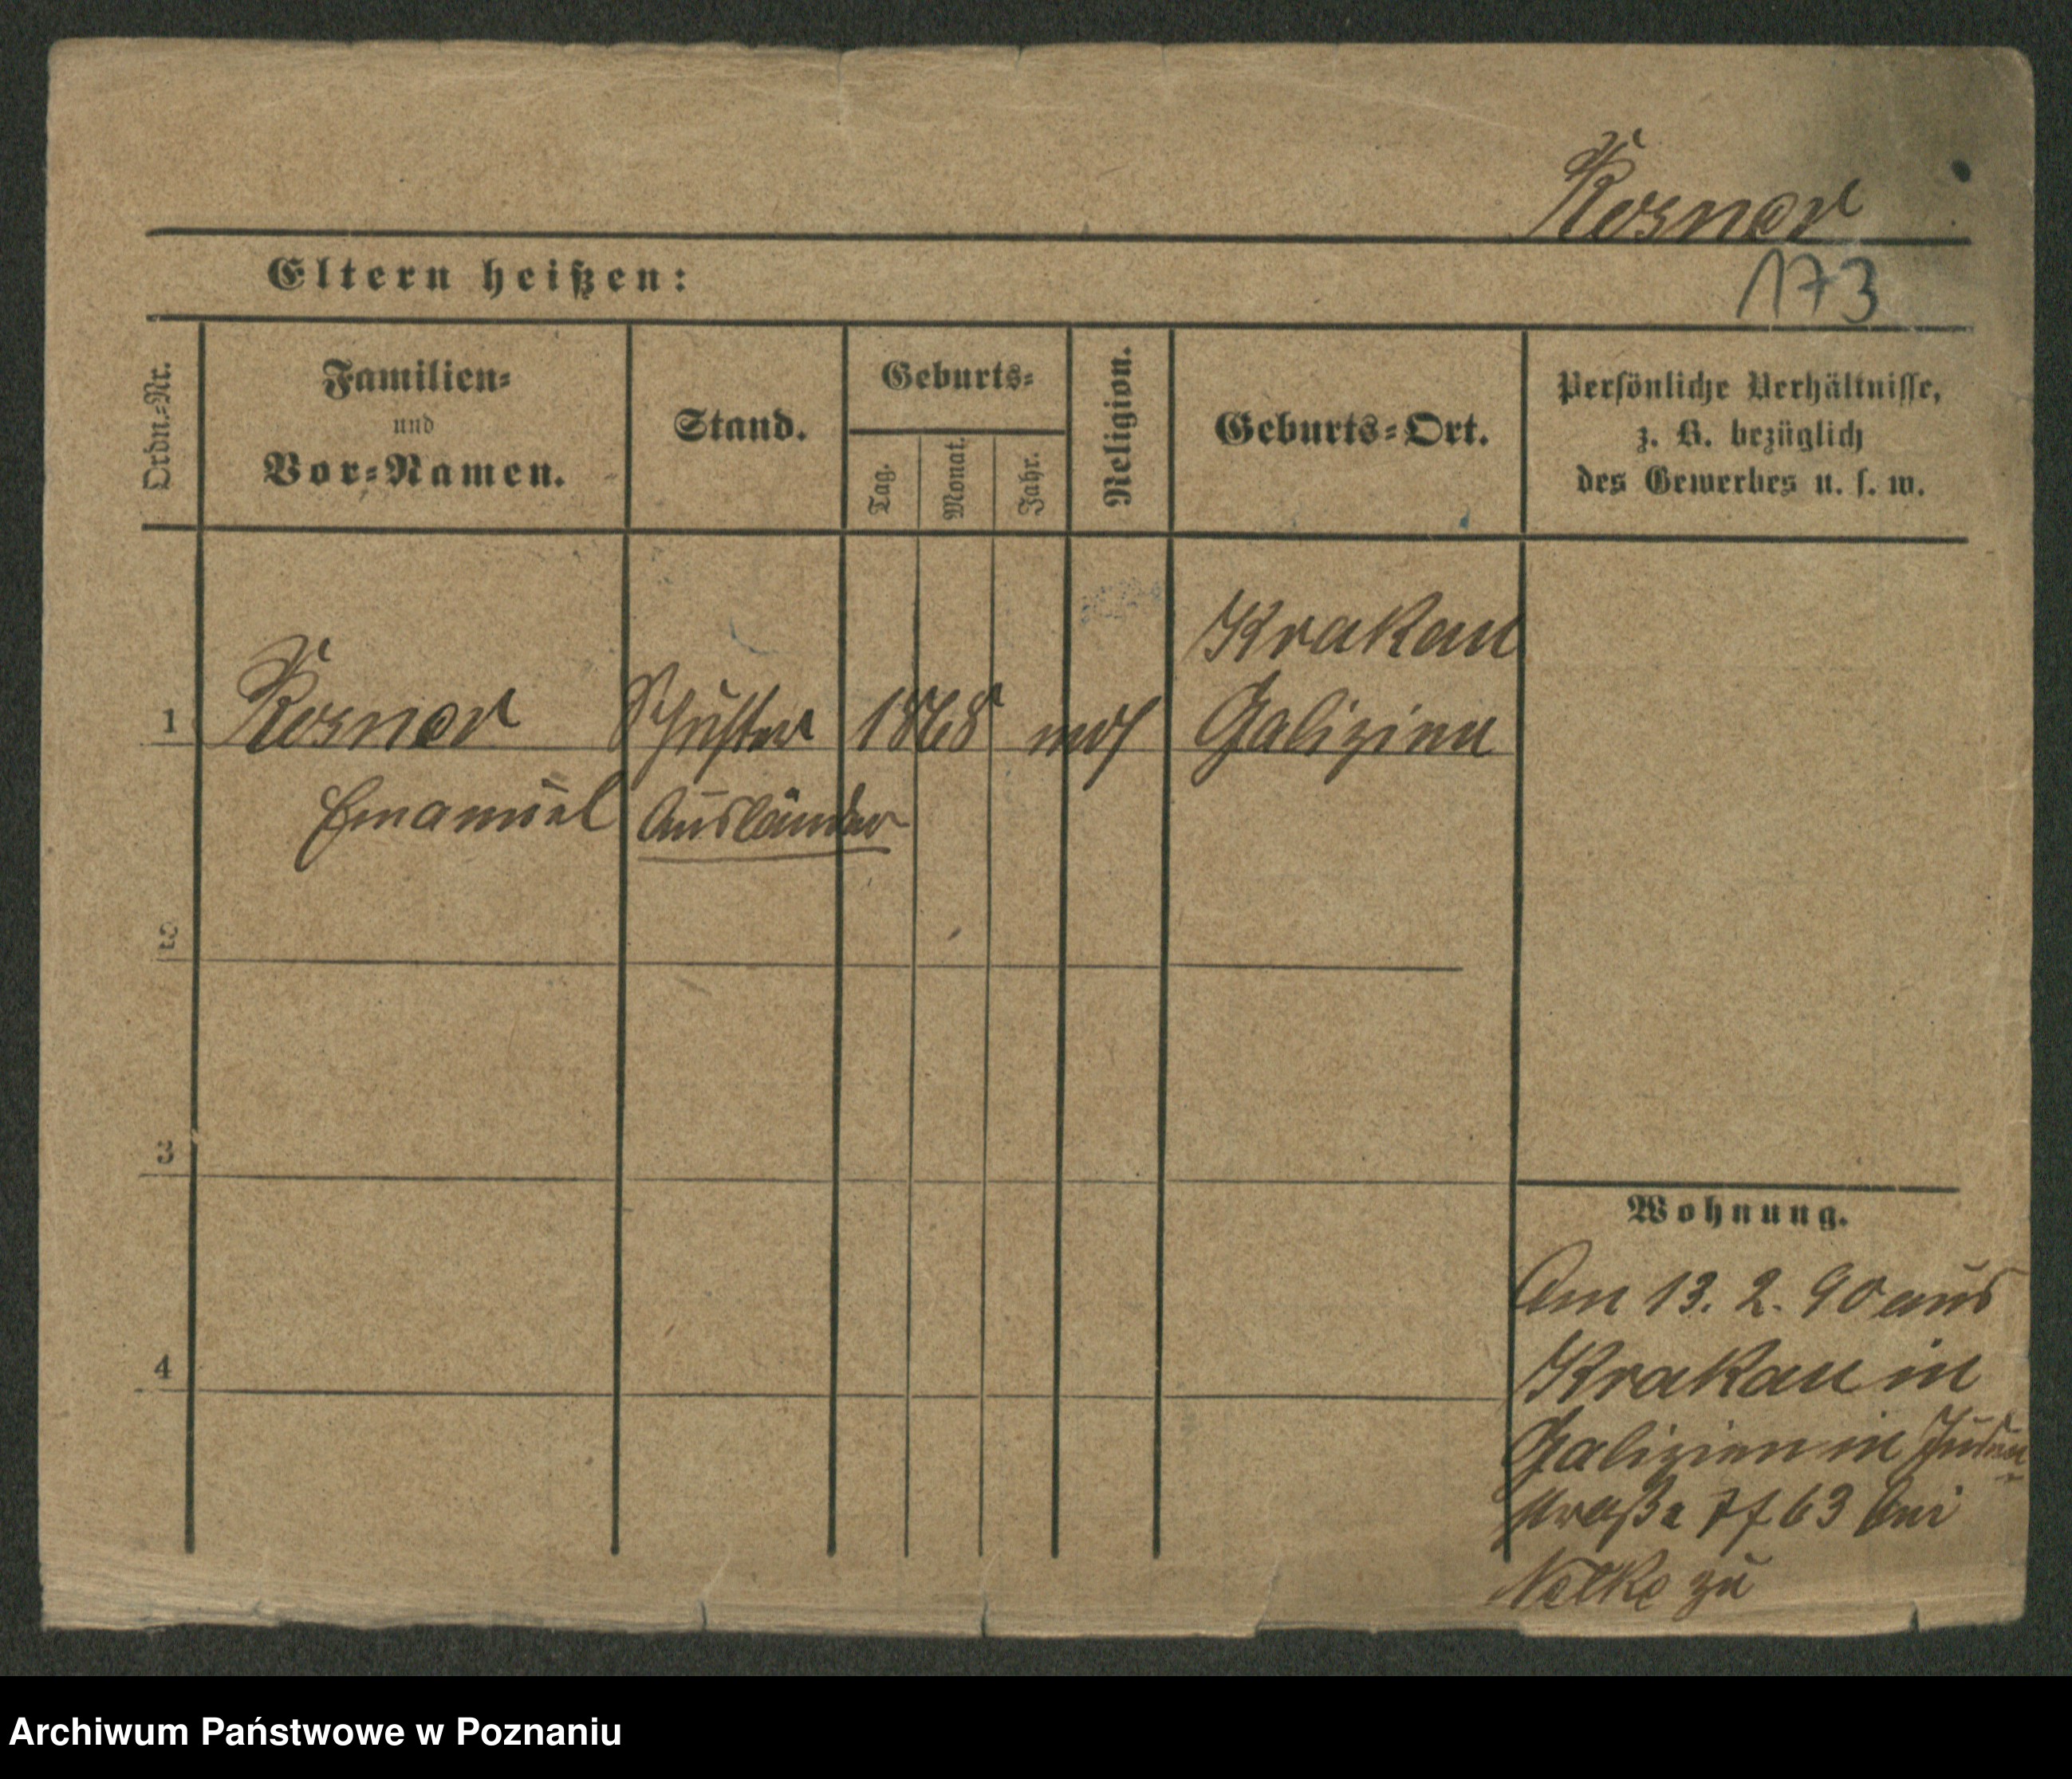 Rosner
Eltern heißen:
173
Ordn.=Nr.
Familien=
und
Vor=Namen.
Stand.
Geburts=
Tag.
Monat.
Jahr.
Religion.
Geburts=Ort.
Persönliche Verhältnisse,
z. B. bezüglich
des Gewerbes u. s. w.
Krakau
1 Rosner Schuster 1868 mos Galizien
Emanuel Ausländer
2
3
4
Wohnung.
Am 13. 2. 90 aus
Krakau in
Galizien in Juden
straße 63 bei
zu
Archiwum Państwowe w Poznaniu